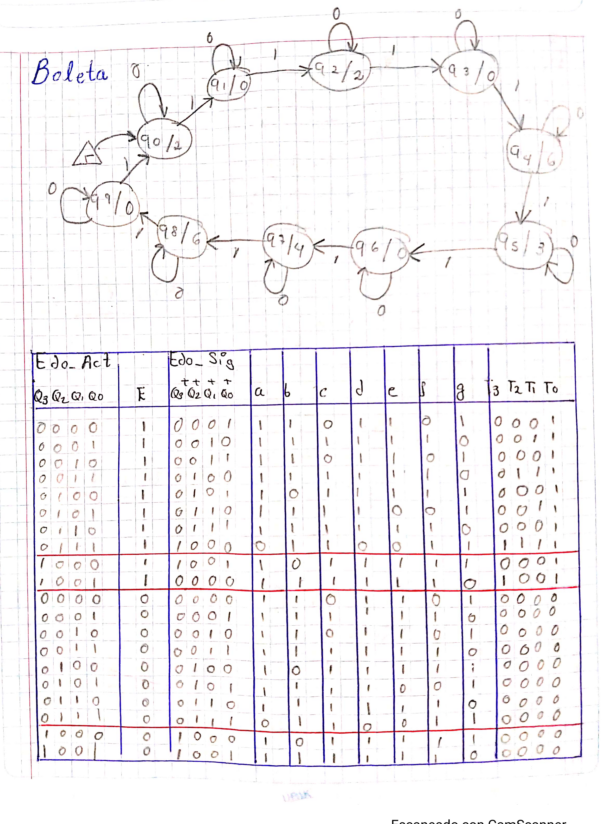 Boleta
0
0
0
0
1
1
1
1
1
q0/2
q1/0
q2/2
q3/0
q4/6
q5/3
q6/0
q7/4
q8/6
q9/0
Edo_Act Edo_Sig
Q3 Q2 Q1 Q0 E Q3+ Q2+ Q1+ Q0+ a b c d e f g T3 T2 T1 T0
0 0 0 0 1 0 0 0 1 1 1 0 1 1 0 1 0 0 0 1
0 0 0 1 1 0 0 1 0 1 1 1 1 1 1 0 0 0 1 1
0 0 1 0 1 0 0 1 1 1 1 0 1 1 0 1 0 0 0 1
0 0 1 1 1 0 1 0 0 1 1 1 1 1 1 0 0 1 1 1
0 1 0 0 1 0 1 0 1 1 0 1 1 1 1 1 0 0 0 1
0 1 0 1 1 0 1 1 0 1 1 1 1 0 0 1 0 0 1 1
0 1 1 0 1 0 1 1 1 1 1 1 1 1 1 0 0 0 0 1
0 1 1 1 1 1 0 0 0 0 1 1 0 0 1 1 1 1 1 1
1 0 0 0 1 1 0 0 1 1 0 1 1 1 1 1 0 0 0 1
1 0 0 1 1 0 0 0 0 1 1 1 1 1 1 0 1 0 0 1
0 0 0 0 0 0 0 0 0 1 1 0 1 1 0 1 0 0 0 0
0 0 0 1 0 0 0 0 1 1 1 1 1 1 1 0 0 0 0 0
0 0 1 0 0 0 0 1 0 1 1 0 1 1 0 1 0 0 0 0
0 0 1 1 0 0 0 1 1 1 1 1 1 1 1 0 0 0 0 0
0 1 0 0 0 0 1 0 0 1 0 1 1 1 1 1 0 0 0 0
0 1 0 1 0 0 1 0 1 1 1 1 1 0 0 1 0 0 0 0
0 1 1 0 0 0 1 1 0 1 1 1 1 1 1 0 0 0 0 0
0 1 1 1 0 0 1 1 1 0 1 1 0 0 1 1 0 0 0 0
1 0 0 0 0 1 0 0 0 1 0 1 1 1 1 1 0 0 0 0
1 0 0 1 0 1 0 0 1 1 1 1 1 1 1 0 0 0 0 0